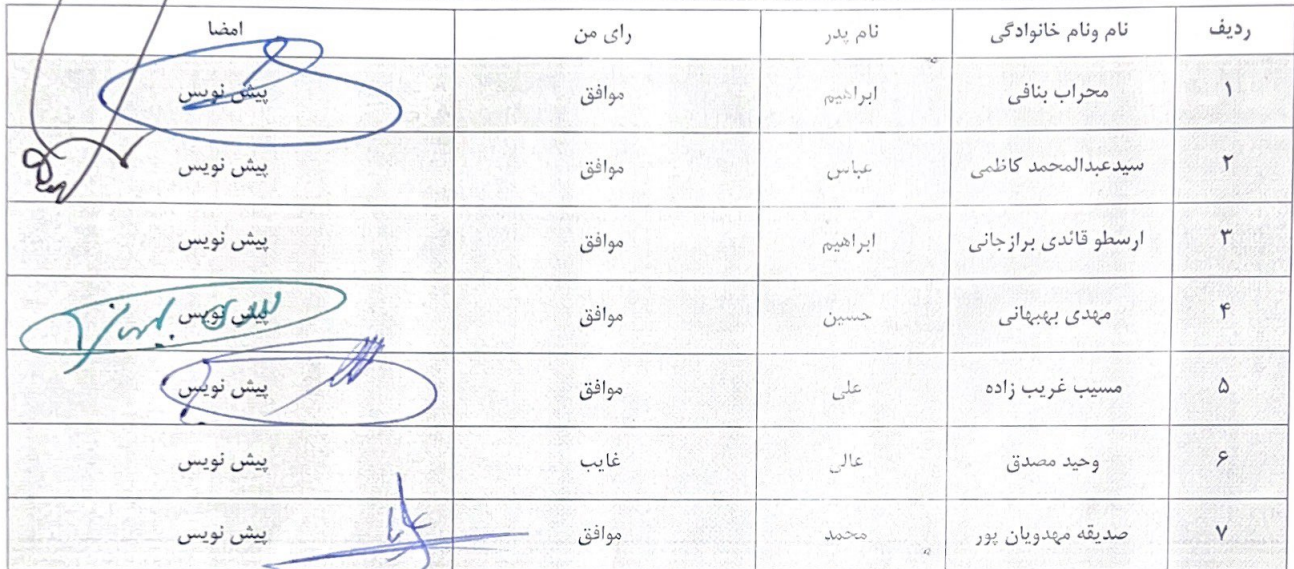 ردیف نام ونام خانوادگی نام پدر رای من امضا
۱ محراب بنافی ابراهیم موافق پیش نویس
۲ سیدعبدالمحمد کاظمی عباس موافق پیش نویس
۳ ارسطو قائدی برازجانی ابراهیم موافق پیش نویس
۴ مهدی بهبهانی حسین موافق پیش نویس
۵ مسیب غریب زاده علی موافق پیش نویس
۶ وحید مصدق عالی غایب پیش نویس
۷ صدیقه مهدویان پور محمد موافق پیش نویس